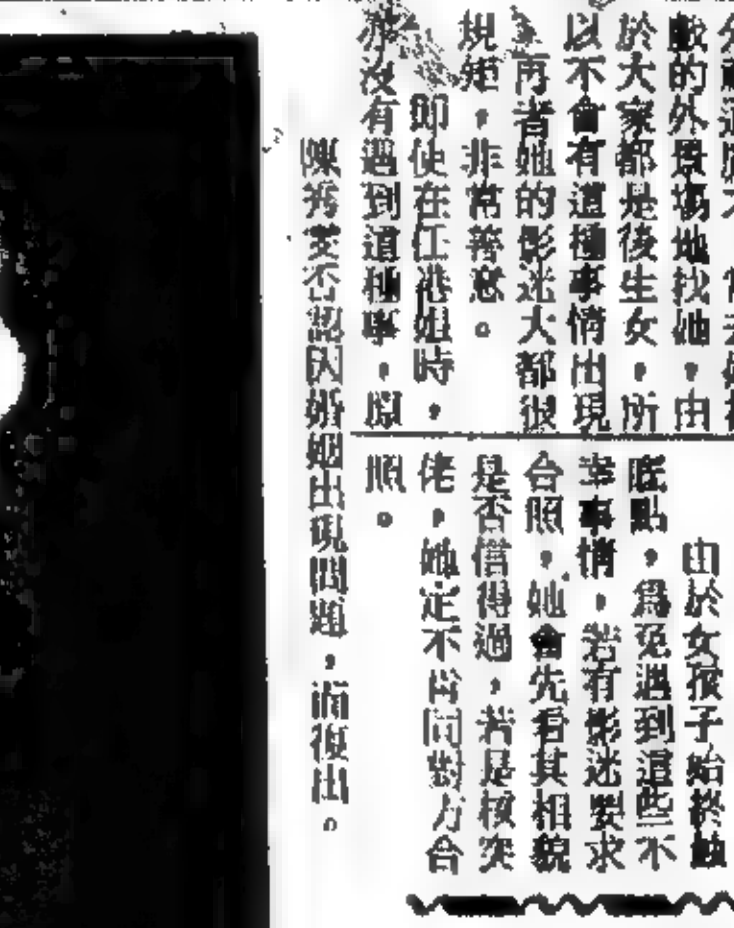 戲的外景場地找她，由
於大家都是後生女，所
以不會有這種事情出現
再者她的影迷大都很
規矩，非常善意。
即使在任港姐時，
亦沒有遇到這種事，原
由於女孩子始終蝕
底點，爲免遇到這些不
幸事情，若有影迷要求
合照，她會先看其相貌
是否信得過，若是核突
佬，她定不肯同對方合
照。
陳秀雯否認因婚姻出現問題，而復出。